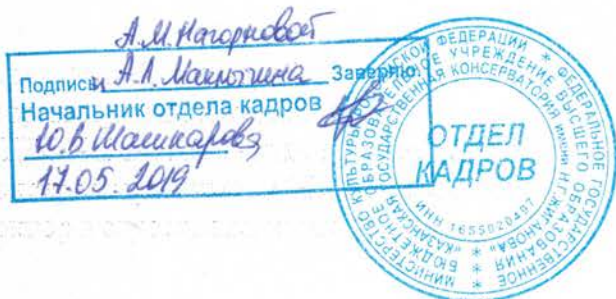 А.М. Нагорновой
Подписи А.Л. Маклыгина Заверяю:
Начальник отдела кадров
Ю.В. Машкарова
17.05.2019
МИНИСТЕРСТВО КУЛЬТУРЫ РОССИЙСКОЙ ФЕДЕРАЦИИ * ФЕДЕРАЛЬНОЕ ГОСУДАРСТВЕННОЕ
БЮДЖЕТНОЕ ОБРАЗОВАТЕЛЬНОЕ УЧРЕЖДЕНИЕ ВЫСШЕГО ОБРАЗОВАНИЯ *
"КАЗАНСКАЯ ГОСУДАРСТВЕННАЯ КОНСЕРВАТОРИЯ ИМЕНИ Н.Г.ЖИГАНОВА" *
ИНН 1655020497
ОТДЕЛ
КАДРОВ